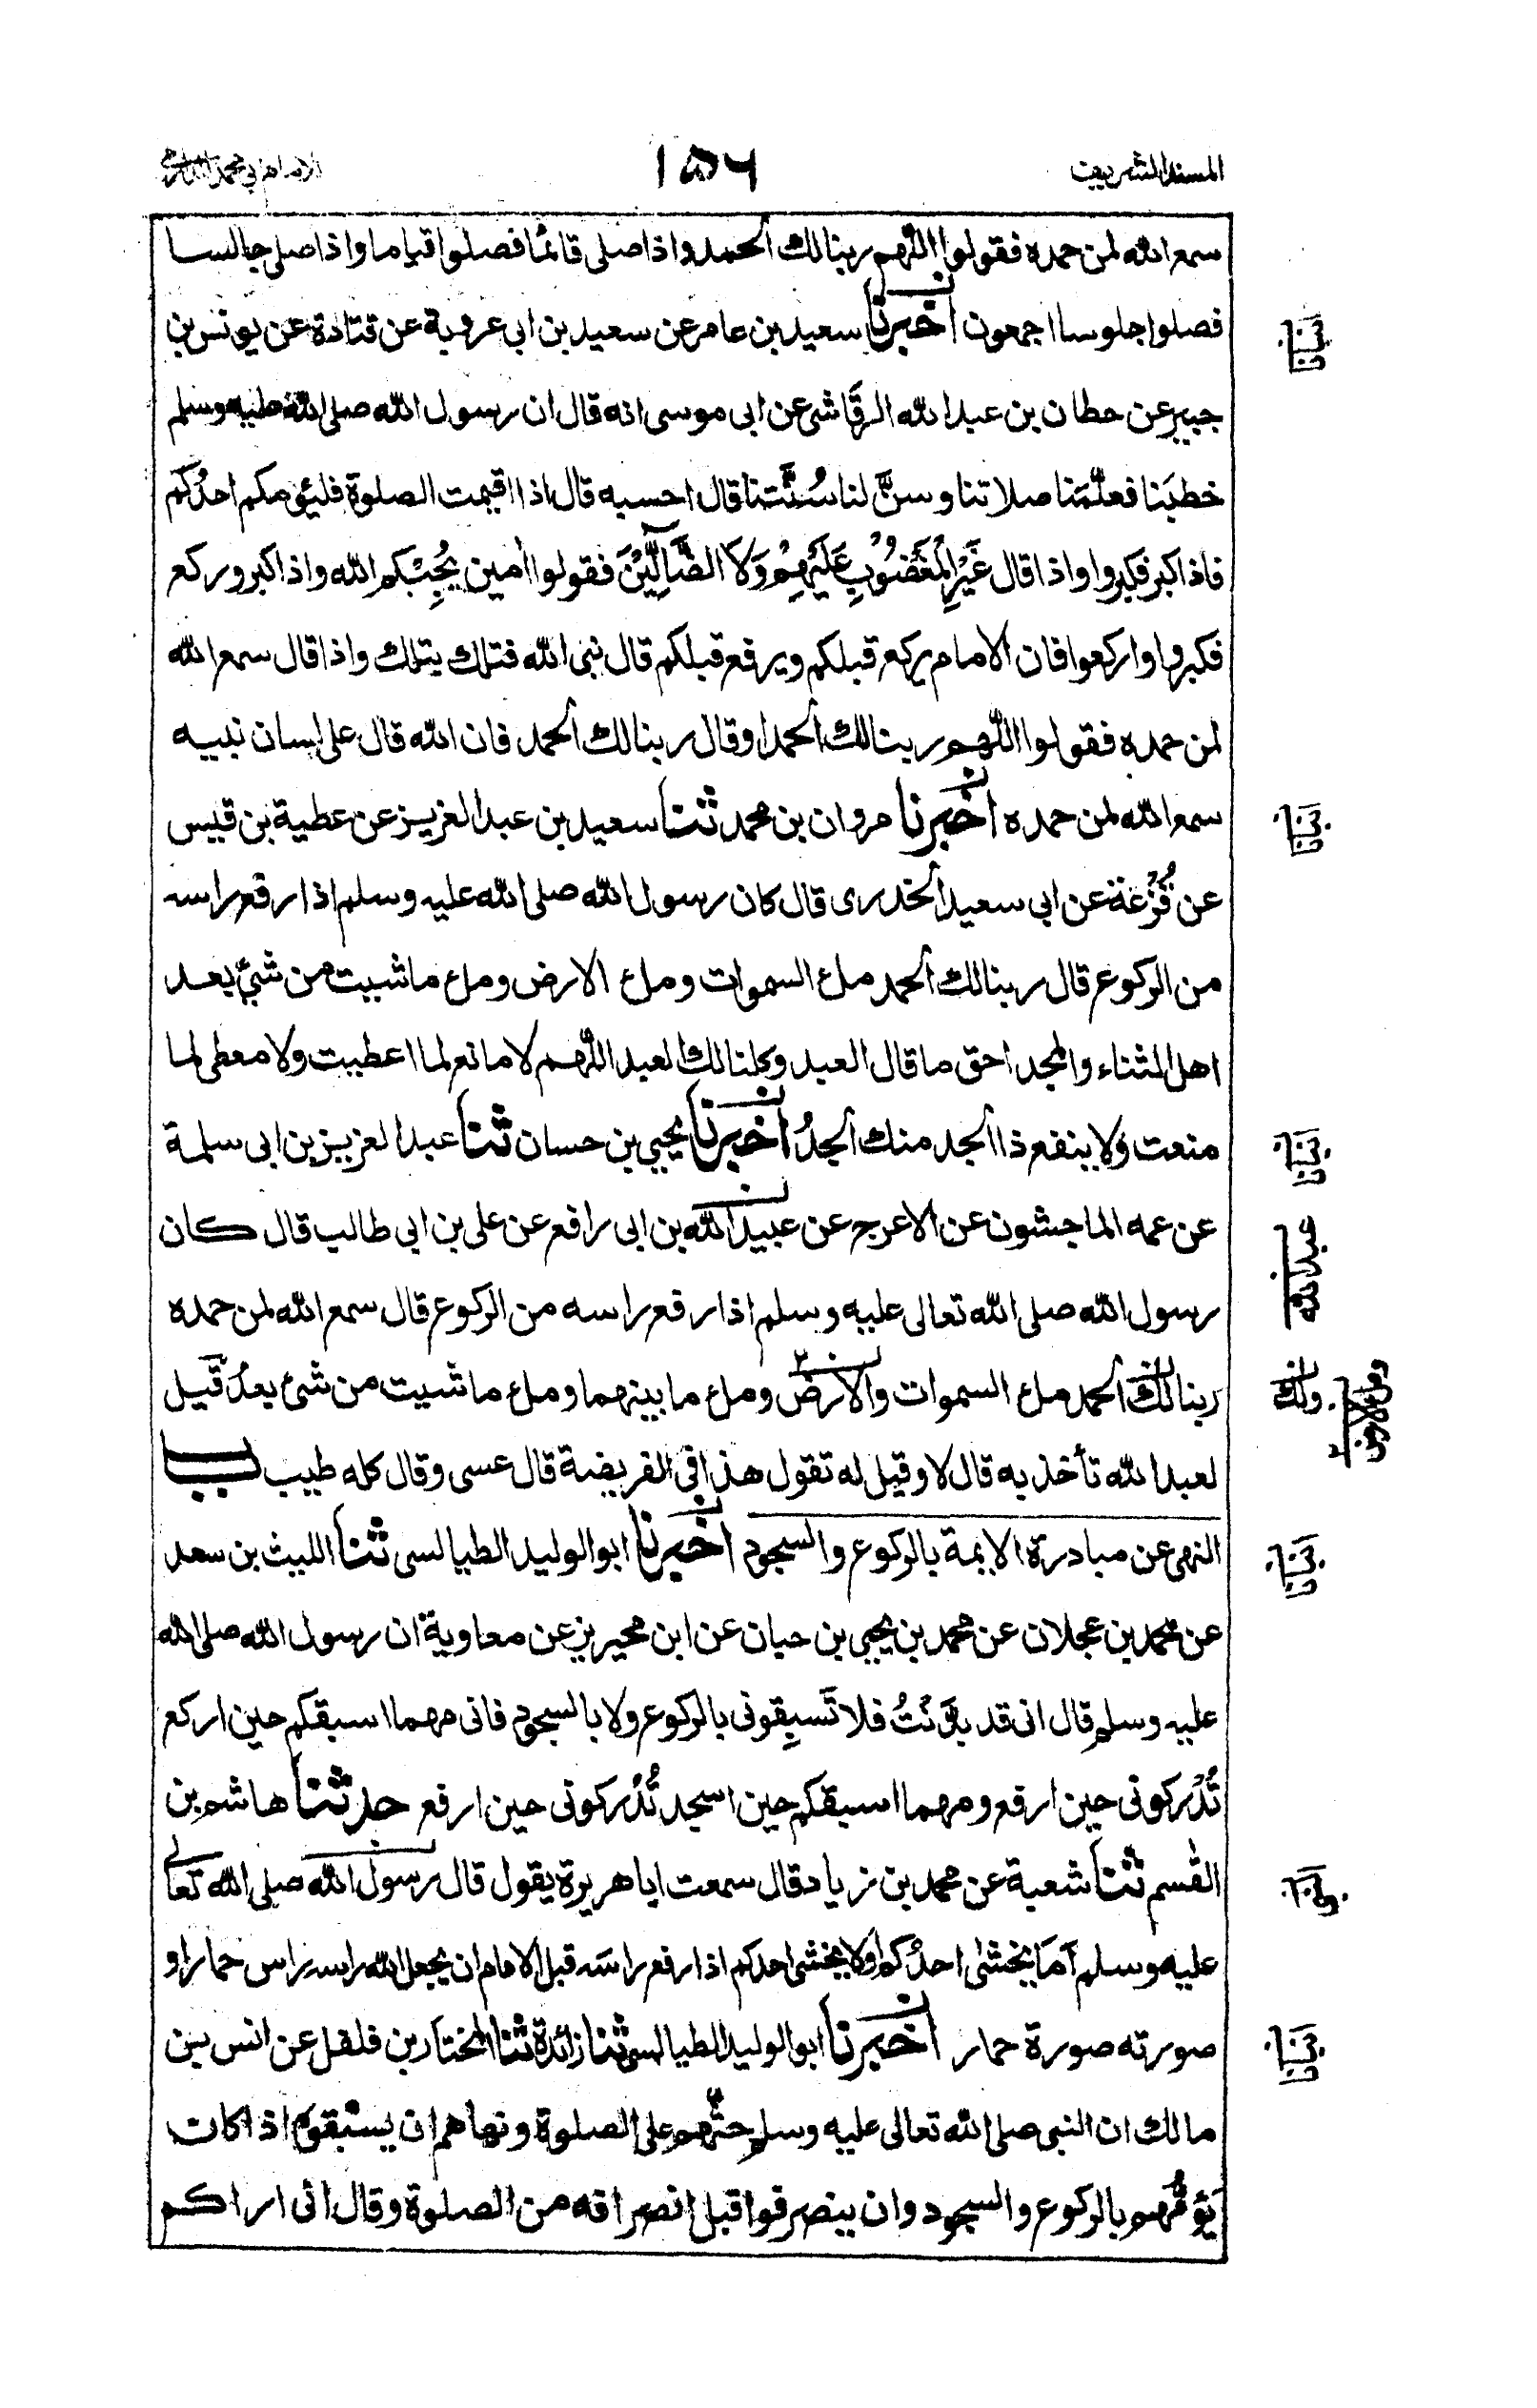 المسند الشريف ١٥٦ الامام ابي محمد الدارمي
سمع الله لمن حمده فقولوا اللهم ربنا لك الحمد واذا صلى قائما فصلوا قياما واذا صلى جالسا
فصلوا جلوسا اجمعون اخبرنا سعيد بن عامر عن سعيد بن ابى عروبة عن قتادة عن يونس بن
جبير عن حطان بن عبد الله الرقاشى عن ابى موسى انه قال ان رسول الله صلى الله عليه وسلم
خطبنا فعلّمَنا صلاتنا وسنّ لنا سُنَّتنا قال احسبه قال اذا اقيمت الصلوة فليؤمكم احدُكم
فاذا كبر فكبروا واذا قال غَيْرِ الْمَغْضُوْبِ عَلَيْهِمْ وَلَا الضَّآلِّيْنَ فقولوا اٰمين يُجِبْكم الله واذا كبر وركع
فكبروا واركعوا فان الامام يركع قبلكم ويرفع قبلكم قال نبى الله فتلك بتلك واذا قال سمع الله
لمن حمده فقولوا اللهم ربنا لك الحمد او قال ربنا لك الحمد فان الله قال على لسان نبيه
سمع الله لمن حمده اخبرنا مروان بن محمد ثنا سعيد بن عبد العزيز عن عطية بن قيس
عن قُزْعَة عن ابى سعيد الخدرى قال كان رسول الله صلى الله عليه وسلم اذا رفع راسه
من الركوع قال ربنا لك الحمد ملء السموات وملء الارض وملء ما شيت من شئ بعد
اهل الثناء والمجد احق ما قال العبد وكلنا لك العبد اللهم لا مانع لما اعطيت ولا معطى لما
منعت ولا ينفع ذا الجد منك الجدُ اخبرنا يحيى بن حسان ثنا عبد العزيز بن ابى سلمة
عن عمه الماجشون عن الاعرج عن عبيد الله بن ابى رافع عن على بن ابى طالب قال كان
رسول الله صلى الله تعالى عليه وسلم اذا رفع راسه من الركوع قال سمع الله لمن حمده
ربنا لك الحمد ملء السموات والارض وملء ما بينهما وملء ما شيت من شئ بعدُ قيل
لعبد الله تأخذ به قال لا وقيل له تقول هذا فى الفريضة قال عسى وقال كله طيب باب
النهى عن مبادرة الايمة بالركوع والسجود اخبرنا ابو الوليد الطيالسى ثنا الليث بن سعد
عن محمد بن عجلان عن محمد بن يحيى بن حبان عن ابن محيريز عن معاوية ان رسول الله صلى الله
عليه وسلم قال انى قد بدَّنْتُ فلا تَسبِقونى بالركوع ولا بالسجود فانى مهما اسبقكم حين اركع
تُدْركونى حين ارفع ومهما اسبقكم حين اسجد تُدْركونى حين ارفع حدثنا هاشم بن
القٰسم ثنا شعبة عن محمد بن زياد قال سمعت ابا هريرة يقول قال رسول الله صلى الله تعالى
عليه وسلم اَمَا يخشٰى احدُكم او لا يخشى احدكم اذا رفع راسَه قبل الامام ان يجعل الله راسه راس حمار او
صورته صورة حمار اخبرنا ابو الوليد الطيالسى ثنا زائدة ثنا المختار بن فلفل عن انس بن
مالك ان النبى صلى الله تعالى عليه وسلم حثّهم على الصلوة ونهاهم ان يسبقوه اذا كان
يَؤُمُّهم بالركوع والسجود وان ينصرفوا قبل انصرافه من الصلوة وقال انى اراكم
عبد الله
ولك
وملء الارض